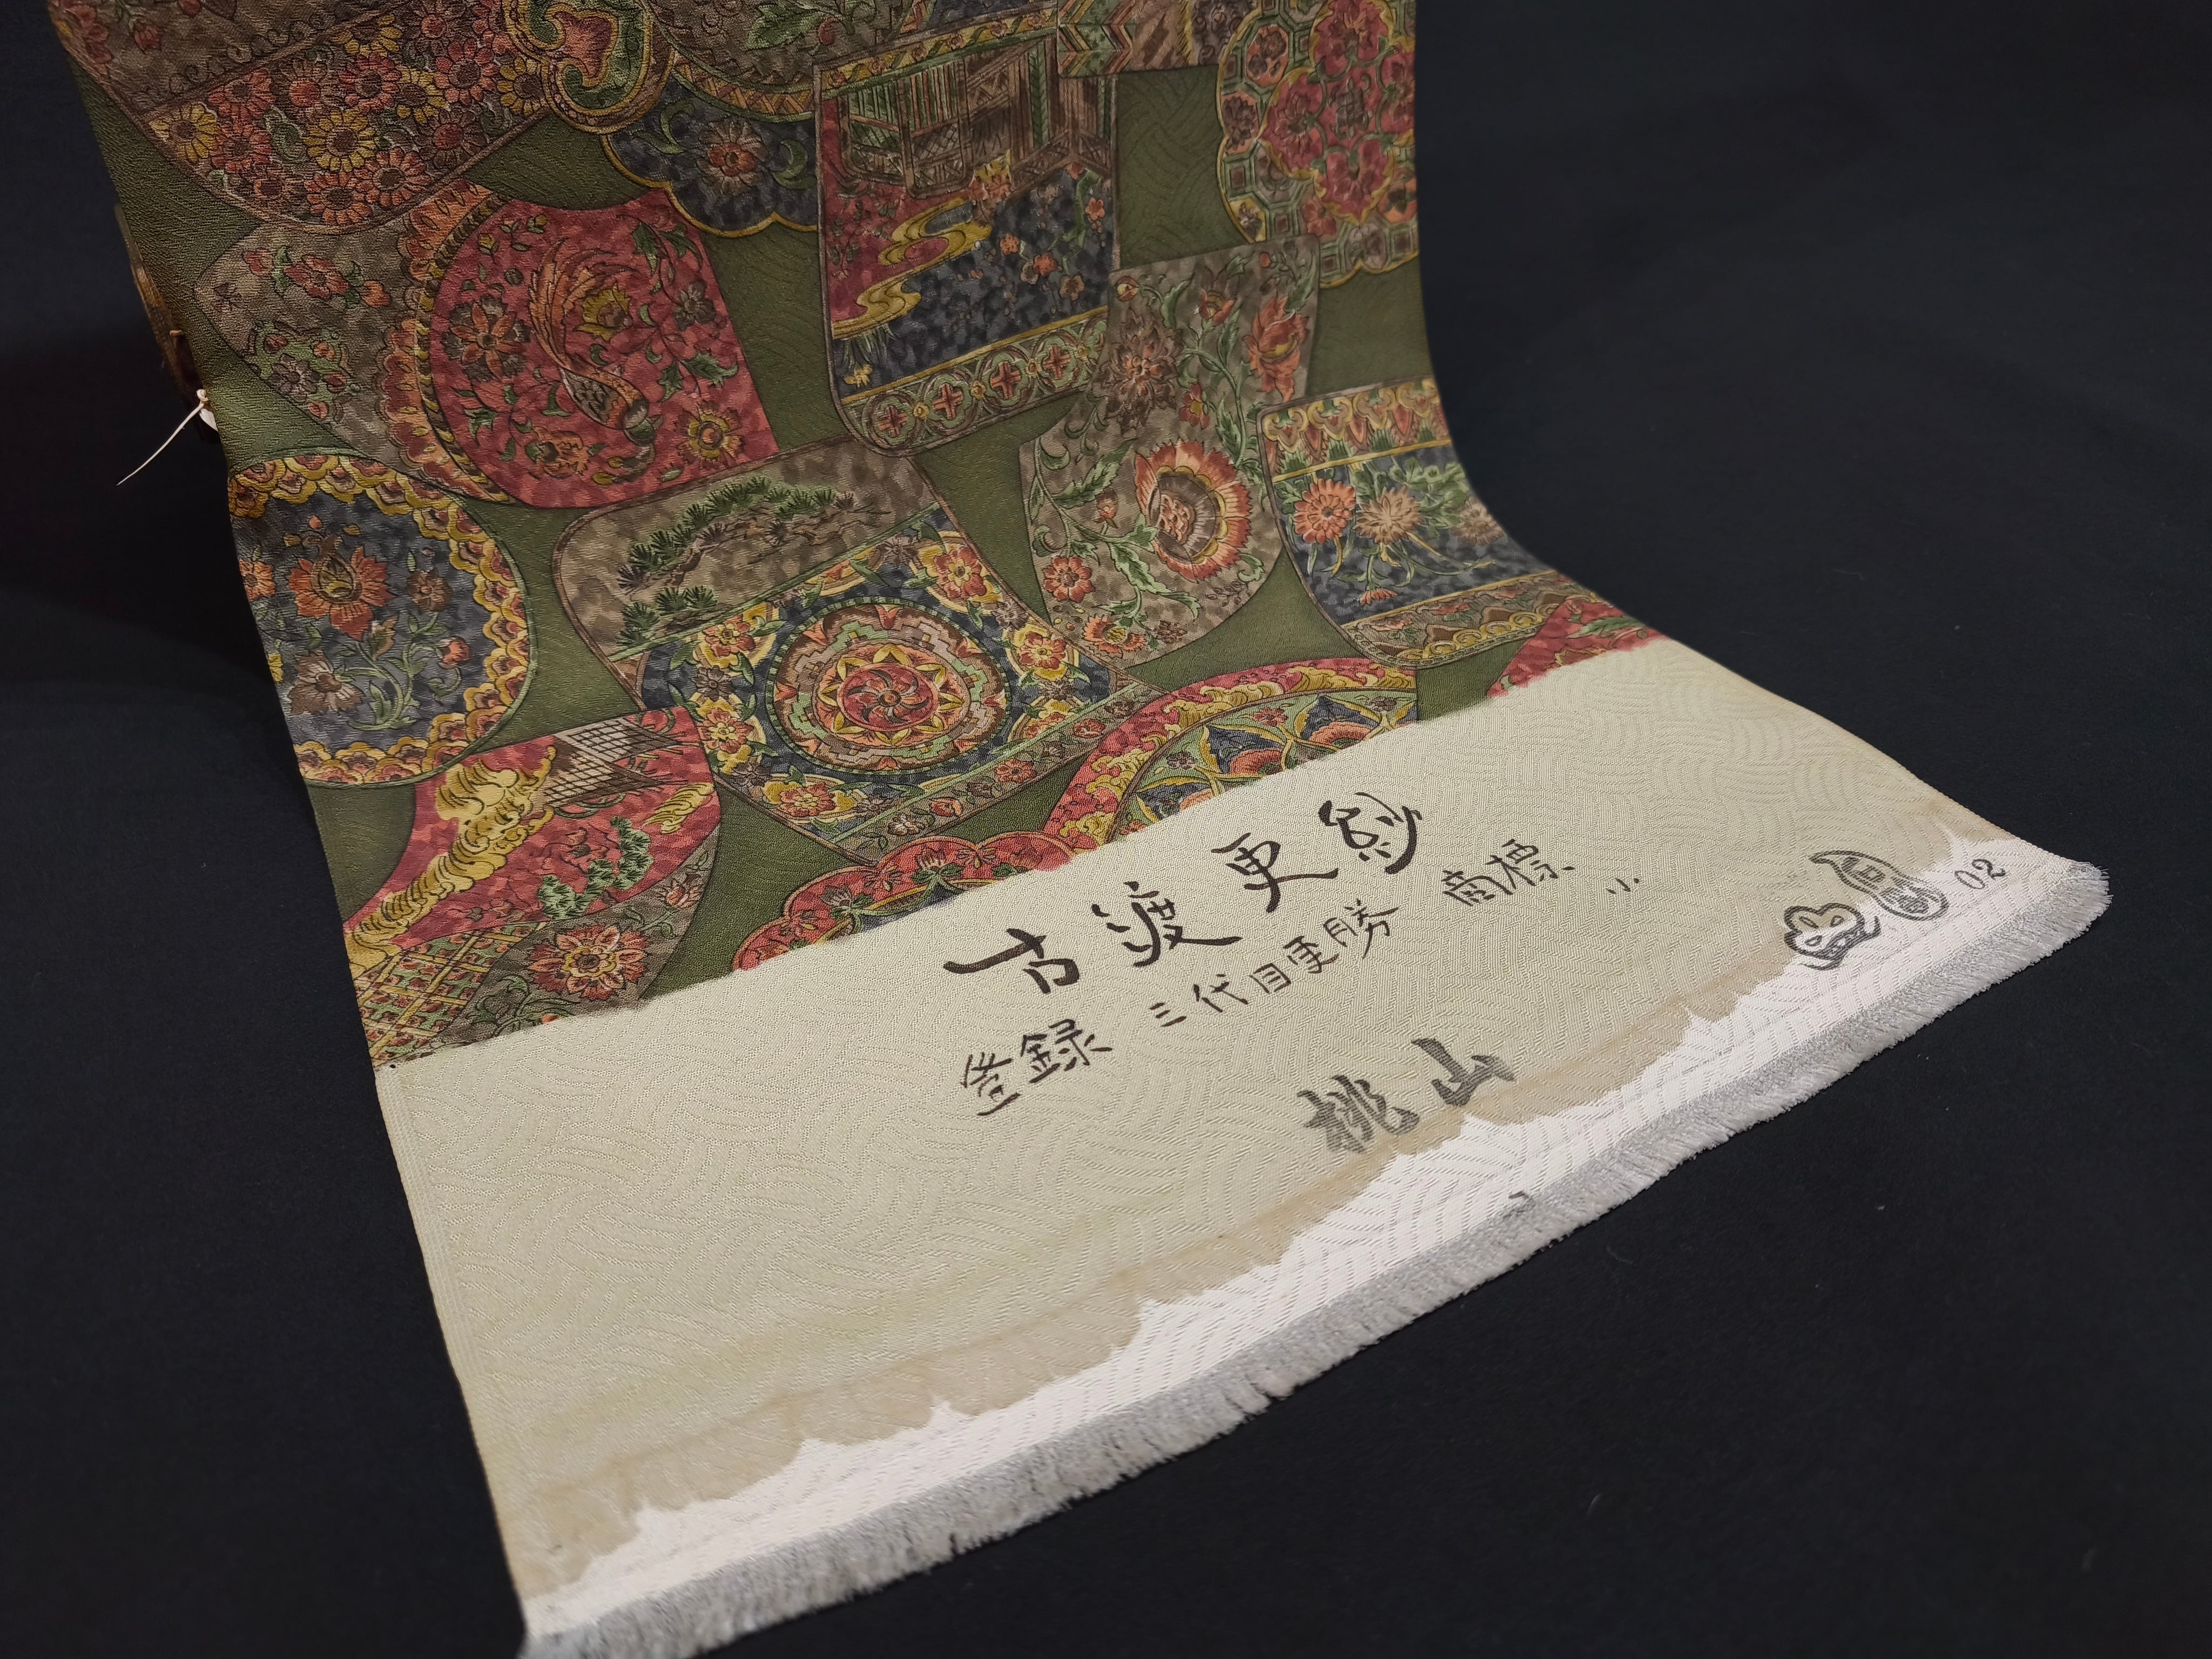 古渡更紗
登録 三代目更勝 商標
桃山
02